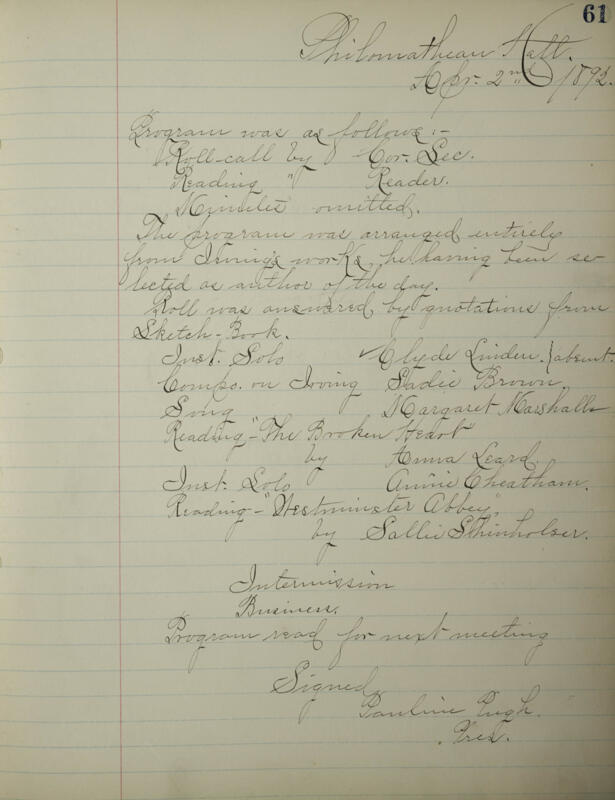 61
Philomathean Hall.
Apr. 2nd 1892.
Program was as follows:-
Roll-call by Cor. Sec.
Reading " Reader.
Minutes omitted.
The program was arranged entirely
from Irving's works, he having been se-
lected as author of the day.
Roll was answered by quotations from
Sketch-Book.
Inst. Solo Clyde Linden. } absent.
Compo. on Irving Sadie Brown.
Song Margaret Marshall
Reading-"The Broken Heart"
by Anna Leard.
Inst. Solo Annie Cheatham.
Reading-"Westminster Abbey,"
by Sallie
Intermission
Business.
Program read for next meeting
Signed
Pauline Pugh.
Pres.